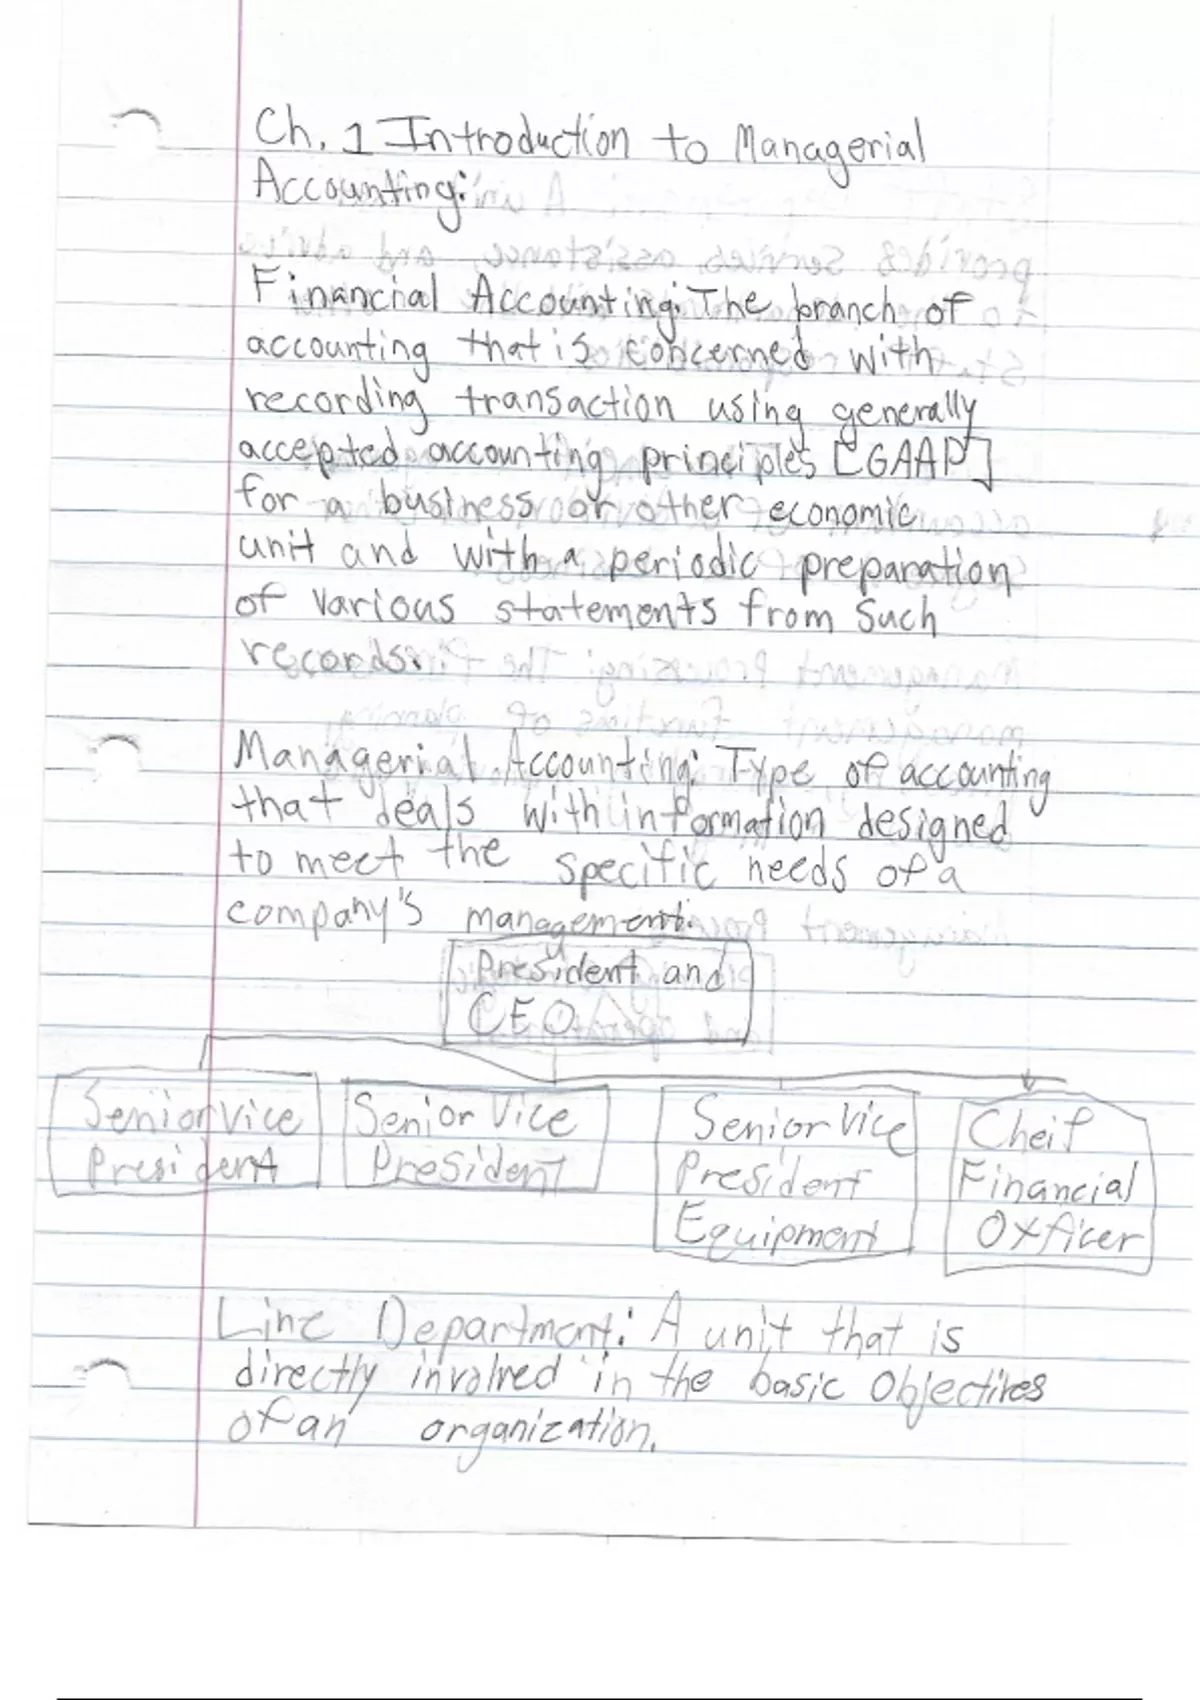 Ch. 1 Introduction to Managerial
Accounting:
Financial Accounting: The branch of
accounting that is concerned with
recording transaction using generally
accepted accounting principles [GAAP]
for a business or other economic
unit and with a periodic preparation
of various statements from such
records.
Managerial Accounting: Type of accounting
that deals with information designed
to meet the specific needs of a
company's management.
President and
CEO
Senior Vice
President
Senior Vice
President
Senior Vice
President
Equipment
Cheif
Financial
Officer
Line Department: A unit that is
directly involved in the basic Objectives
of an organization.